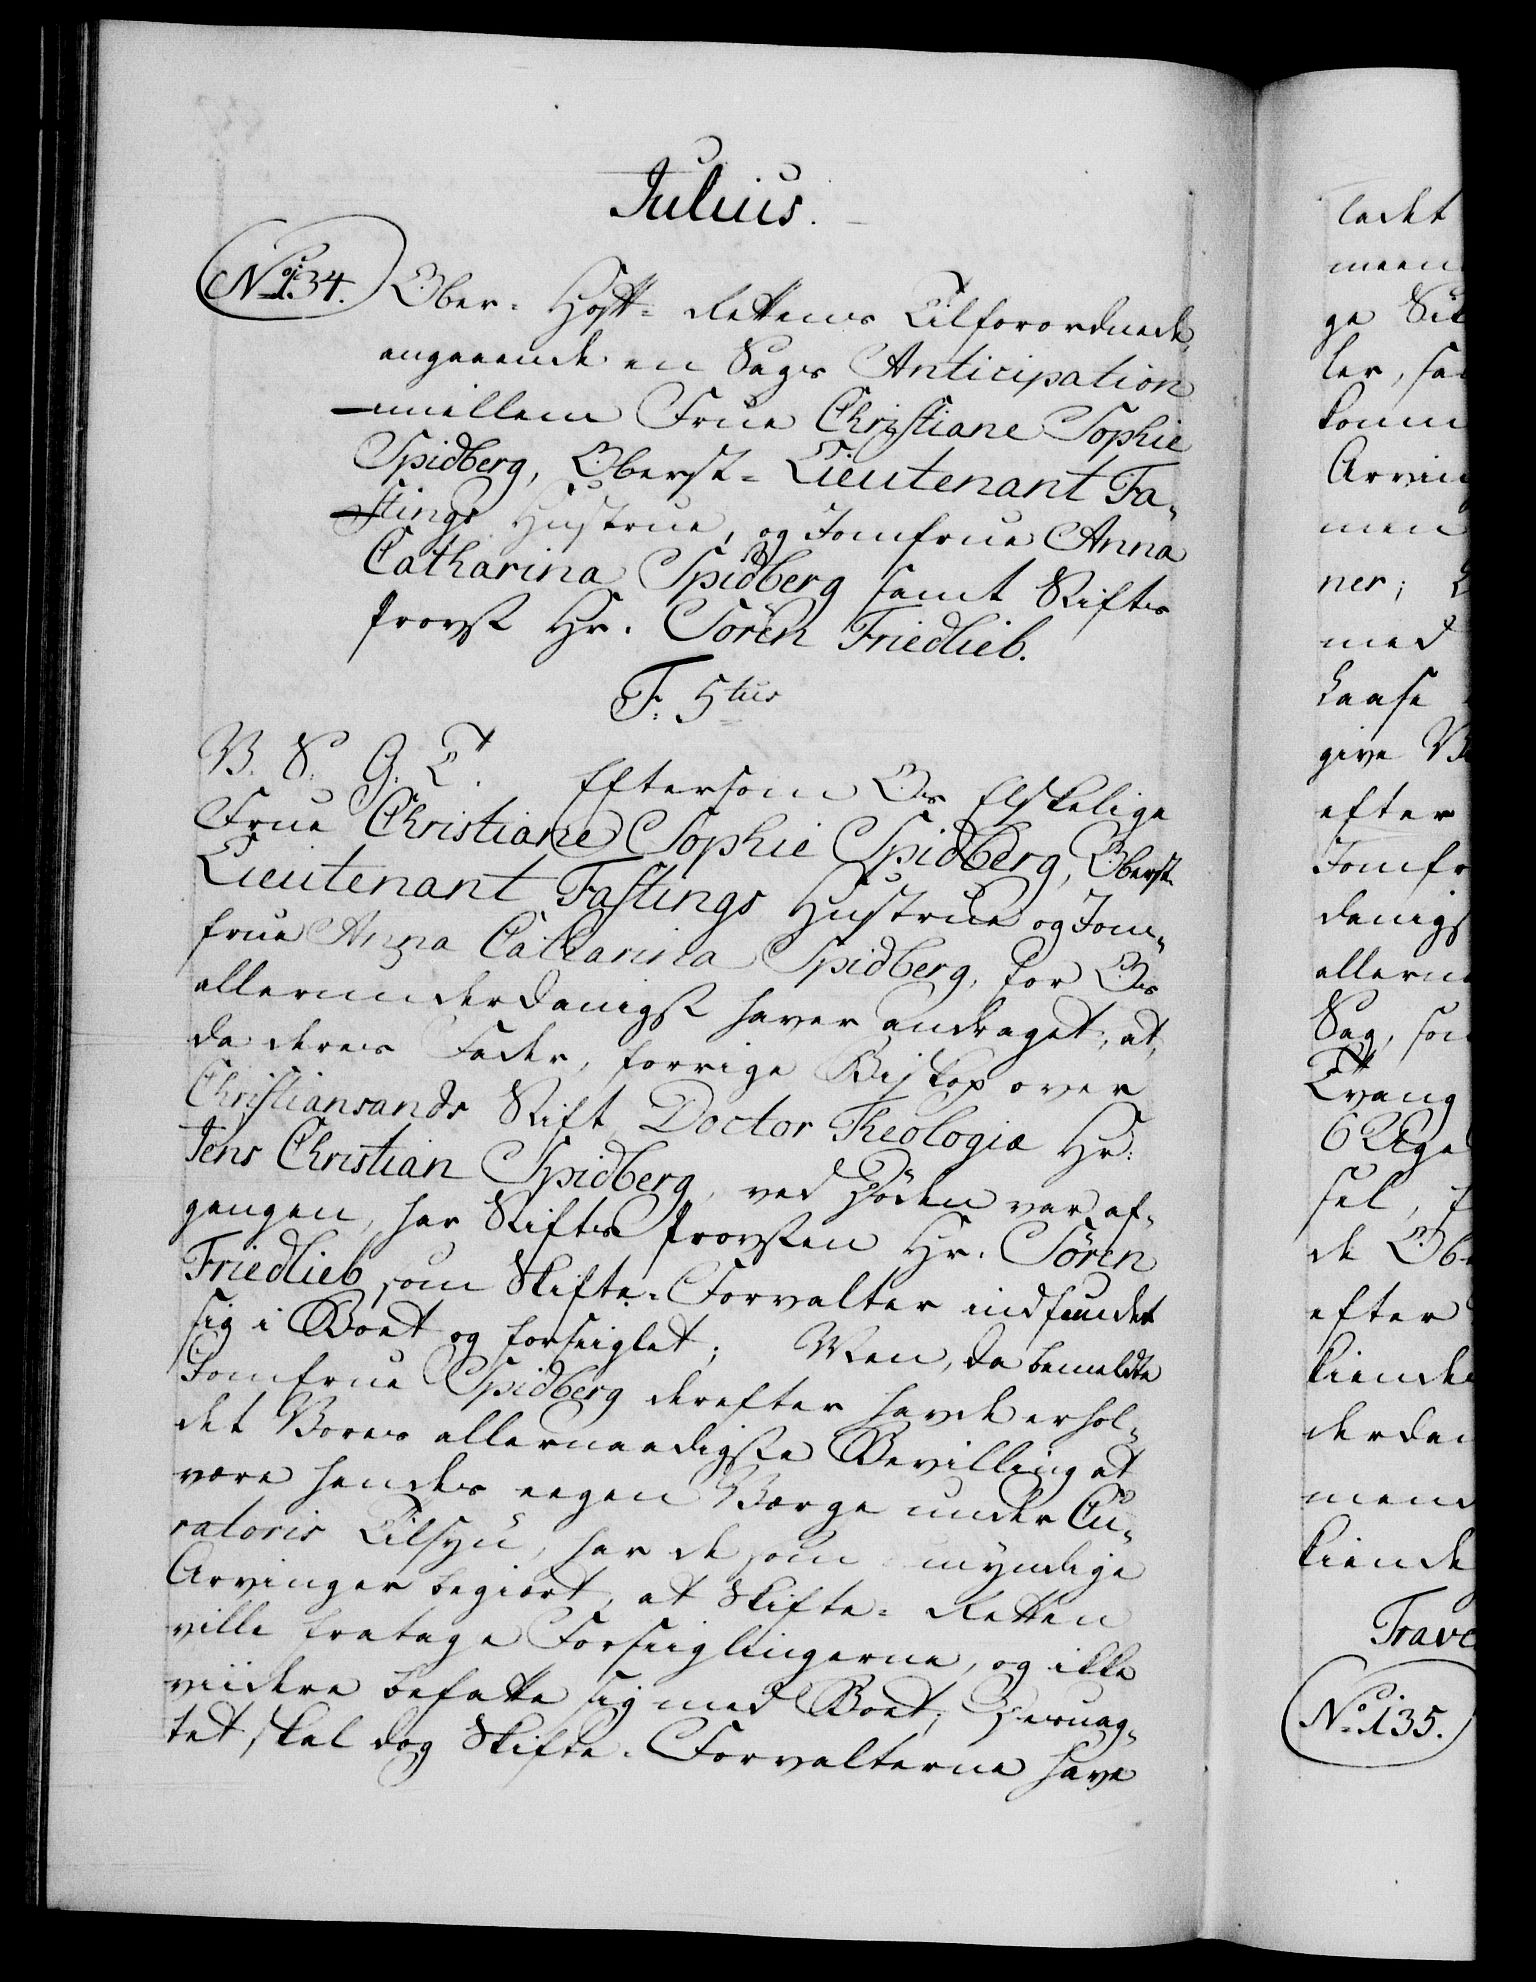 Julius.
No 134. Ober-Hoff-Rettens Tilforordnede
angaaende en Sags Anticipation
imellem Frue Christiane Sophie
Spidberg, Oberst-Lieutenant Fa-
stings Hustrue, og Jomfrue Anna
Catharina Spidberg samt Stifts
Provst Hr. Sören Friedlieb.
F. 5tus
V. S. G. T. Eftersom Os Elskelige
Frue Christiane Sophie Spidberg, Oberst-
Lieutenant Fastings Hustrue og Jom-
frue Anna Catharina Spidberg, for Os
allerunderdanigst haver andraget, at,
da deres Fader, forrige Biskop over
Christiansands Stift Doctor Theologiæ Hr:
Jens Christian Spidberg, ved Döden var af-
gangen, har Stifts Provsten Hr. Sören
Friedlieb som Skifte-Forvalter indfundet
sig i Boet og forseiglet; Men, da bemeldte
Jomfrue Spidberg derefter havde erhol-
det Vores allernaadigste Bevilling at
være hendes eegen Værge under Cu-
ratoris Tilsyn, har de som myndige
Arvinger begiært, at Skifte-Retten
ville fratage Forseiglingerne, og ikke
viidere befatte sig med Boet; Desuag-
tet skal dog Skifte-Forvalterne have
ladet
meen
ge
ler,
komm
Arvin
men
ner;
med
kaase
give
efter
Jomfr
danigs
allern
Sag, som
Tvang
6 Uge
sel,
de Ob
efter
kiende
derdan
mend
kiende
Trave
No 135.